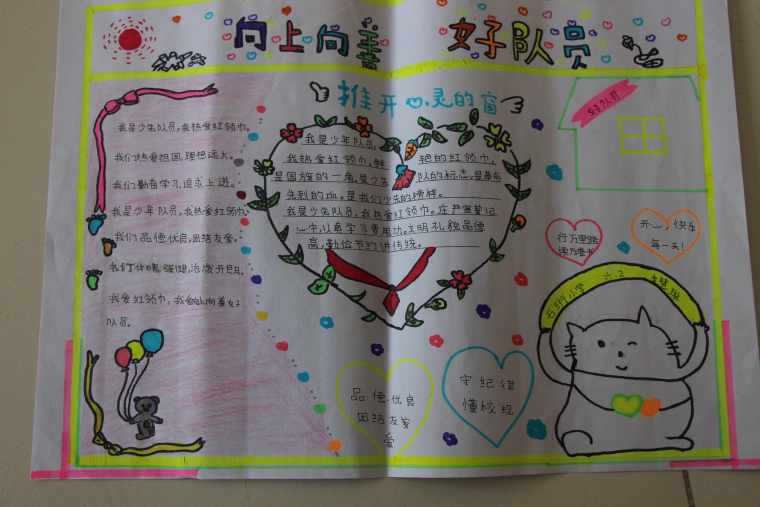 向上向善 好队员
推开心灵的窗
我是少先队员,我热爱红领巾。
我们热爱祖国,理想远大。
我们勤奋学习,追求上进。
我是少年队员,我热爱红领巾
我们品德优良,团结友爱。
我们体魄强健,活泼开朗。
我爱红领巾,我会做向善好
队员。
我是少年队员,
我热爱红领巾,鲜艳的红领巾,
是国旗的一角,是少先队的标志,是革命
先烈的血,是我们少先队的榜样。
我是少先队员,我热爱红领巾。庄严誓记
心中,认真学习
高,勤俭节约讲传统。
行万里路
读万卷书
开心,快乐
每一天!
小学 六.2
品德优良
团结友
爱
守纪律
懂校规